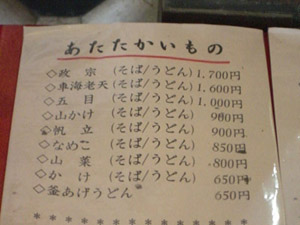 あたたかいもの
◇政宗（そば/うどん）1,700円
◇車海老天（そば/うどん）1,600円
◇五目（そば/うどん）1,000円
◇山かけ（そば/うどん）900円
◇帆立（そば/うどん）900円
◇なめこ（そば/うどん）850円
◇山菜（そば/うどん）800円
◇かけ（そば/うどん）650円
◇釜あげうどん 650円
＊＊＊＊＊＊＊＊＊＊＊